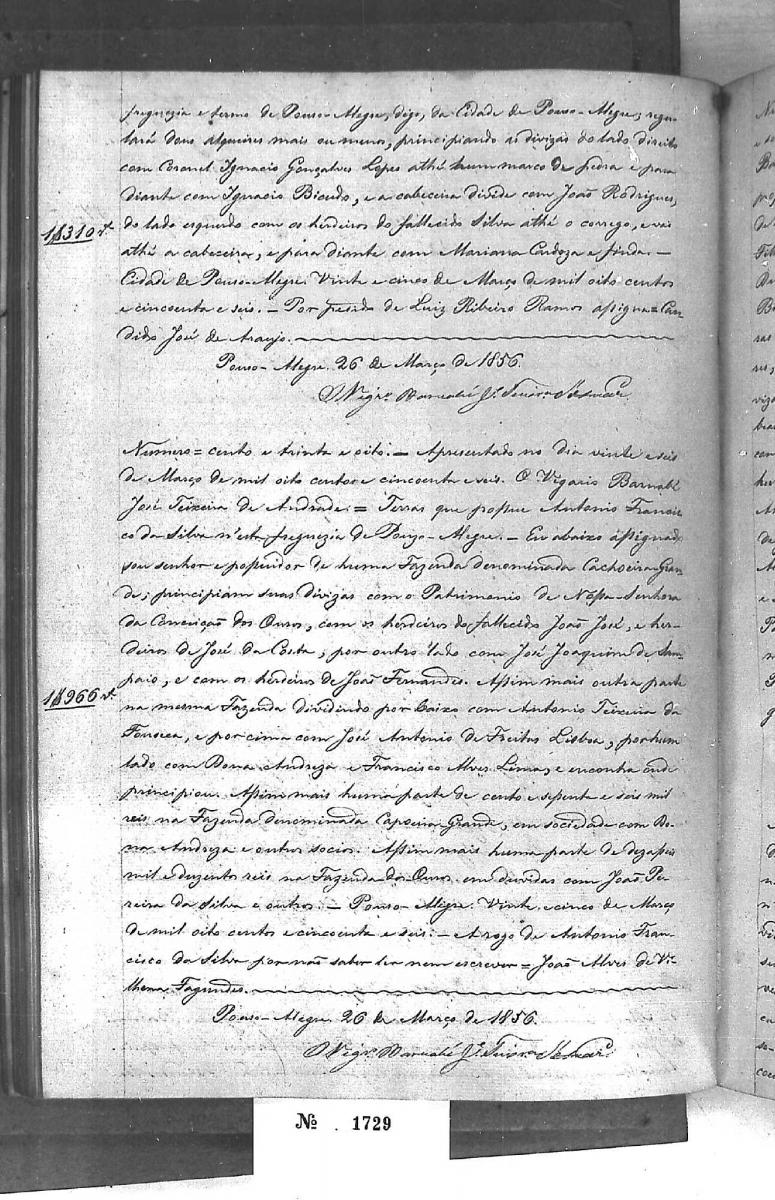 freguezia e termo de Pouso-Alegre, digo, da Cidade de Pouso-Alegre,
dous alqueires mais ou menos, principiando as divizas do lado direito
com Coronel Ignacio Gonçalves Lopes athé hum marco de pedra e para
diante com Ignacio Bicudo, e a cabeceira divide com João Rodrigues,
do lado esquerdo com os herdeiros do fallecido Silva athé o corrego, e vai
athé a cabeceira, e para diante com Marianna Cardoza e finda. —
Cidade de Pouso-Alegre. Vinte e cinco de Março de mil oito centos
e cincoenta e seis. — Por pedido de Luiz Ribeiro Ramos assigna = Can
dido José de Araujo.
Pouso-Alegre. 26 de Março de 1856.
O Vigr.º Barnabé J.e Teixr.a
Numero = cento e trinta e oito. — Apresentado no dia vinte e seis
de Março de mil oito centos e cincoenta e seis. O Vigario Barnabé
José Teixeira de Andrade. = Terras que possue Antonio Francis
co da Silva n'esta freguezia de Pouzo-Alegre. — Eu abaixo assignado
sou senhor e possuidor de huma Fazenda denominada Cachoeira-Gran
de; principiam suas divizas com o Patrimonio de Nossa-Senhora
da Conceição dos Ouros, com os herdeiros do fallecido João José, e her-
deiros de José da Costa, por outro lado com José Joaquim de Sam
paio, e com os herdeiros de João Fernandes. Assim mais outra parte
na mesma Fazenda dividindo por baixo com Antonio Teixeira da
Fonseca, e por cima com José Antonio de Freitas Lisboa, por hum
lado com Dona Andreza e Francisco Alves Lima, e encontra onde
principiou. Assim mais huma parte de cento e setenta e seis mil
reis na Fazenda denominada Capoeira-Grande, em sociedade com Do-
na Andreza e outros socios. Assim mais huma parte de dezaseis
mil e duzentos reis na Fazenda dos Ouros em duvidas com João Pe-
reira da Silva e outros: — Pouso-Alegre. Vinte e cinco de Março
de mil oito centos e cincoenta e seis: — A rogo de Antonio Fran-
cisco da Silva por não saber ler nem escrever = João Alves de Vi-
lhena Fagundes.
Pouso-Alegre. 26 de Março de 1856.
O Vigr.º Barnabé J.e Teixr.a
Nº . 1729